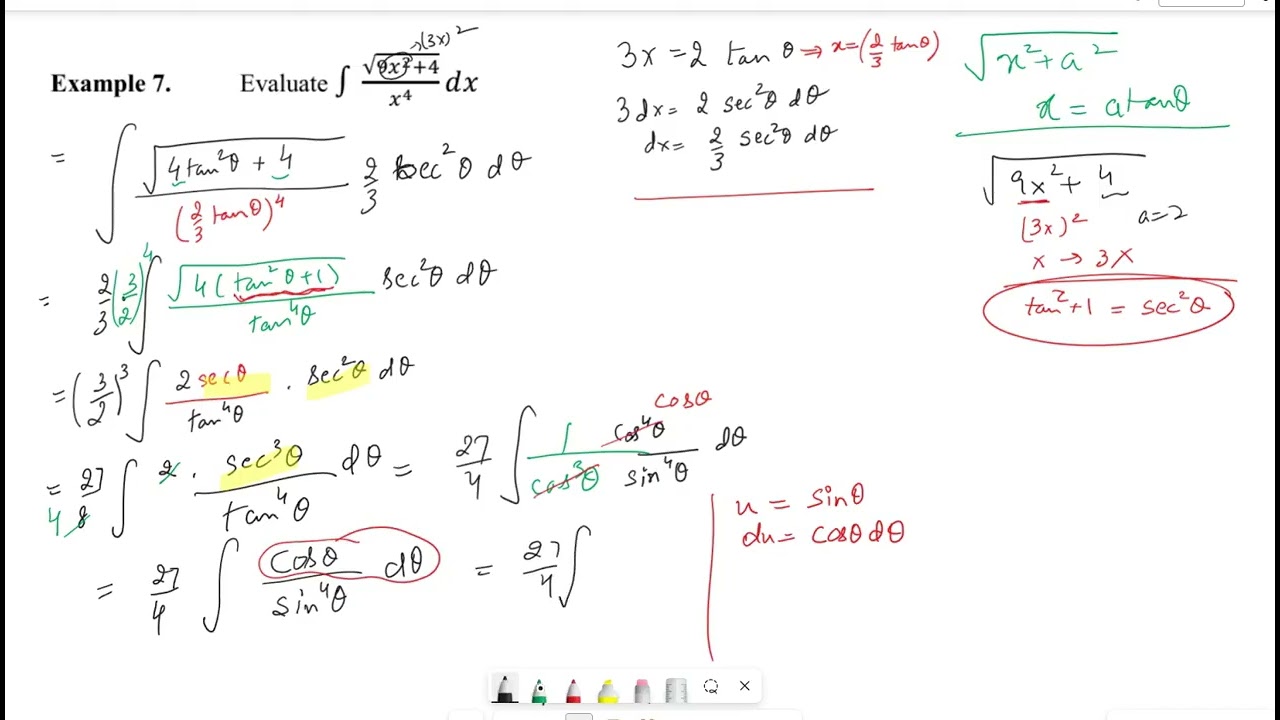 Example 7. Evaluate ∫ √(9x²+4) / x⁴ dx →(3x)²
= ∫ √(4tan²θ + 4) / (2/3 tanθ)⁴ 2/3 sec²θ dθ
= 2/3 (3/2)⁴ ∫ √(4(tan²θ+1)) / tan⁴θ sec²θ dθ
= (3/2)³ ∫ 2secθ / tan⁴θ . sec²θ dθ
= 27/8 4 ∫ 2 . sec³θ / tan⁴θ dθ = 27/4 ∫ 1/cos³θ cos⁴θ/sin⁴θ dθ cosθ
= 27/4 ∫ cosθ / sin⁴θ dθ = 27/4 ∫
3x = 2 tanθ ⇒ x=(2/3 tanθ)
3dx = 2 sec²θ dθ
dx = 2/3 sec²θ dθ
√(x²+a²)
x = a tanθ
√(9x²+4)
(3x)² a=2
x → 3x
tan²+1 = sec²θ
u = sinθ
du = cosθ dθ